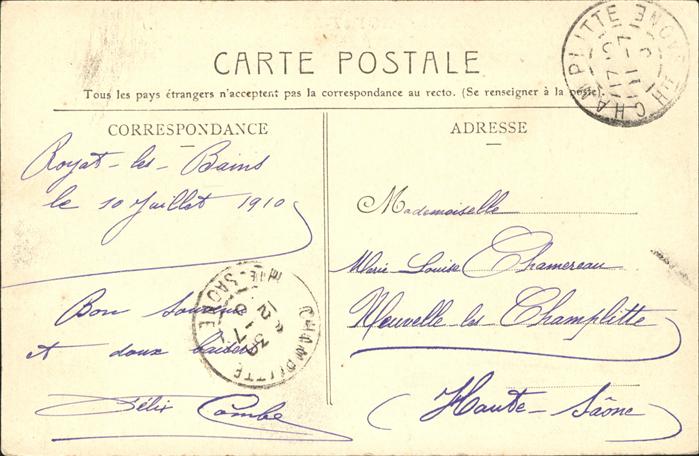 CARTE POSTALE
Tous les pays étrangers n'acceptent pas la correspondance au recto. (Se renseigner à la poste).
CORRESPONDANCE
Royat-les-Bains
le 10 Juillet 1910
Bon souvenir
et doux baisers
Félix Combe
ADRESSE
Mademoiselle
Marie Louise Chamereau
Neuvelle les Champlitte
(Haute-Saône)
CHAMPLITTE
HTE SAONE
CHAMPLITTE
HTE-SAONE